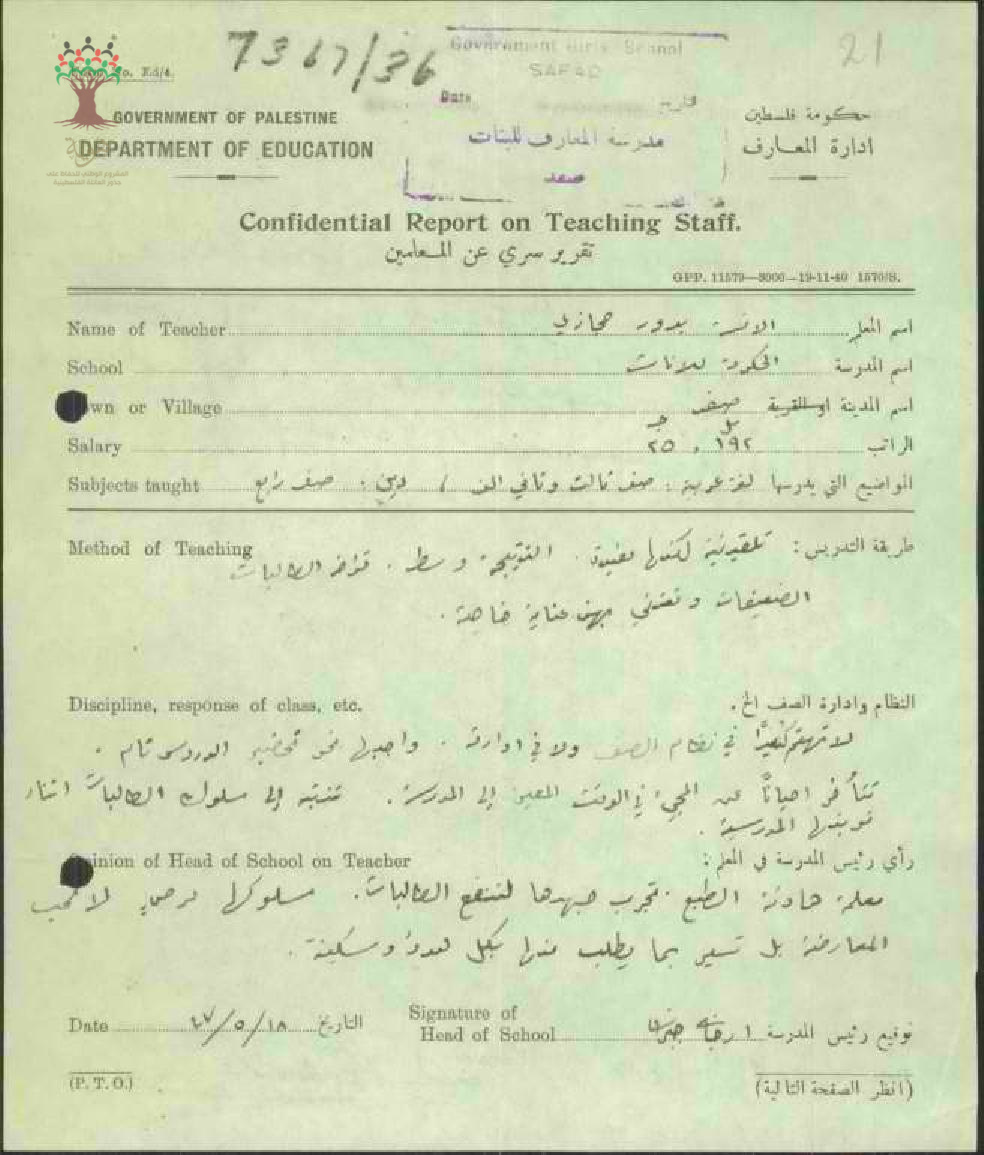 7367/36
21
Government Girls School
SAFAD
Date
تاريخ
مدرسة المعارف للبنات
صفد
No. Ed/4.
GOVERNMENT OF PALESTINE
DEPARTMENT OF EDUCATION
حكومة فلسطين
ادارة المعارف
Confidential Report on Teaching Staff.
تقرير سري عن المعلمين
GPP. 11579—3000—19-11-40 1570/S.
Name of Teacher الانسة بدور حجازي اسم المعلم
School الحكومة للاناث اسم المدرسة
Town or Village صفد اسم المدينة او القرية
Salary ١٩٢ ٢٥ الراتب
Subjects taught المواضيع التي يدرسها لغة عربية : صف ثالث وثاني الف / دين : صف رابع
Method of Teaching طريقة التدريس : تلقينية لكنها مفيدة . النتيجة وسط . تؤخر الطالبات
الضعيفات وتعتني بهن عناية خاصة .
Discipline, response of class, etc. النظام وادارة الصف الخ.
لا تهتم كثيرًا في نظام الصف ولا في ادارته . واجبها نحو تحضير الدروس تام .
تتأخر احيانًا عن المجيء في الوقت المعين إلى المدرسة . تنتبه إلى سلوك الطالبات اثناء
نوبتها المدرسية .
Opinion of Head of School on Teacher رأي رئيس المدرسة في المعلم :
معلمة هادئة الطبع . تجرب جهدها لتنفع الطالبات . سلوكها مرضي لا تحب
المعارضة بل تسير بما يطلب منها بكل هدوء وسكينة .
Date ٤٧/٥/١٨ التاريخ
Signature of
Head of School توقيع رئيس المدرسة
(P. T. O.)
(انظر الصفحة التالية)